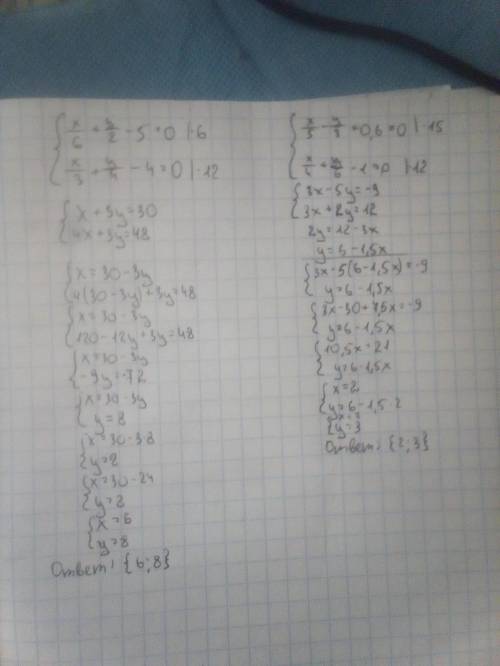 { x/6 + y/2 - 5 = 0 | ·6
{ x/3 + y/4 - 4 = 0 | ·12
{ x + 3y = 30
{ 4x + 3y = 48
{ x = 30 - 3y
{ 4(30 - 3y) + 3y = 48
{ x = 30 - 3y
{ 120 - 12y + 3y = 48
{ x = 30 - 3y
{ -9y = -72
{ x = 30 - 3y
{ y = 8
{ x = 30 - 3·8
{ y = 8
{ x = 30 - 24
{ y = 8
{ x = 6
{ y = 8
Ответ: {6; 8}
{ x/5 - y/3 + 0,6 = 0 | ·15
{ x/4 + y/6 - 1 = 0 | ·12
{ 3x - 5y = -9
{ 3x + 2y = 12
2y = 12 - 3x
y = 6 - 1,5x
{ 3x - 5(6 - 1,5x) = -9
{ y = 6 - 1,5x
{ 3x - 30 + 7,5x = -9
{ y = 6 - 1,5x
{ 10,5x = 21
{ y = 6 - 1,5x
{ x = 2
{ y = 6 - 1,5·2
{ x = 2
{ y = 3
Ответ: {2; 3}